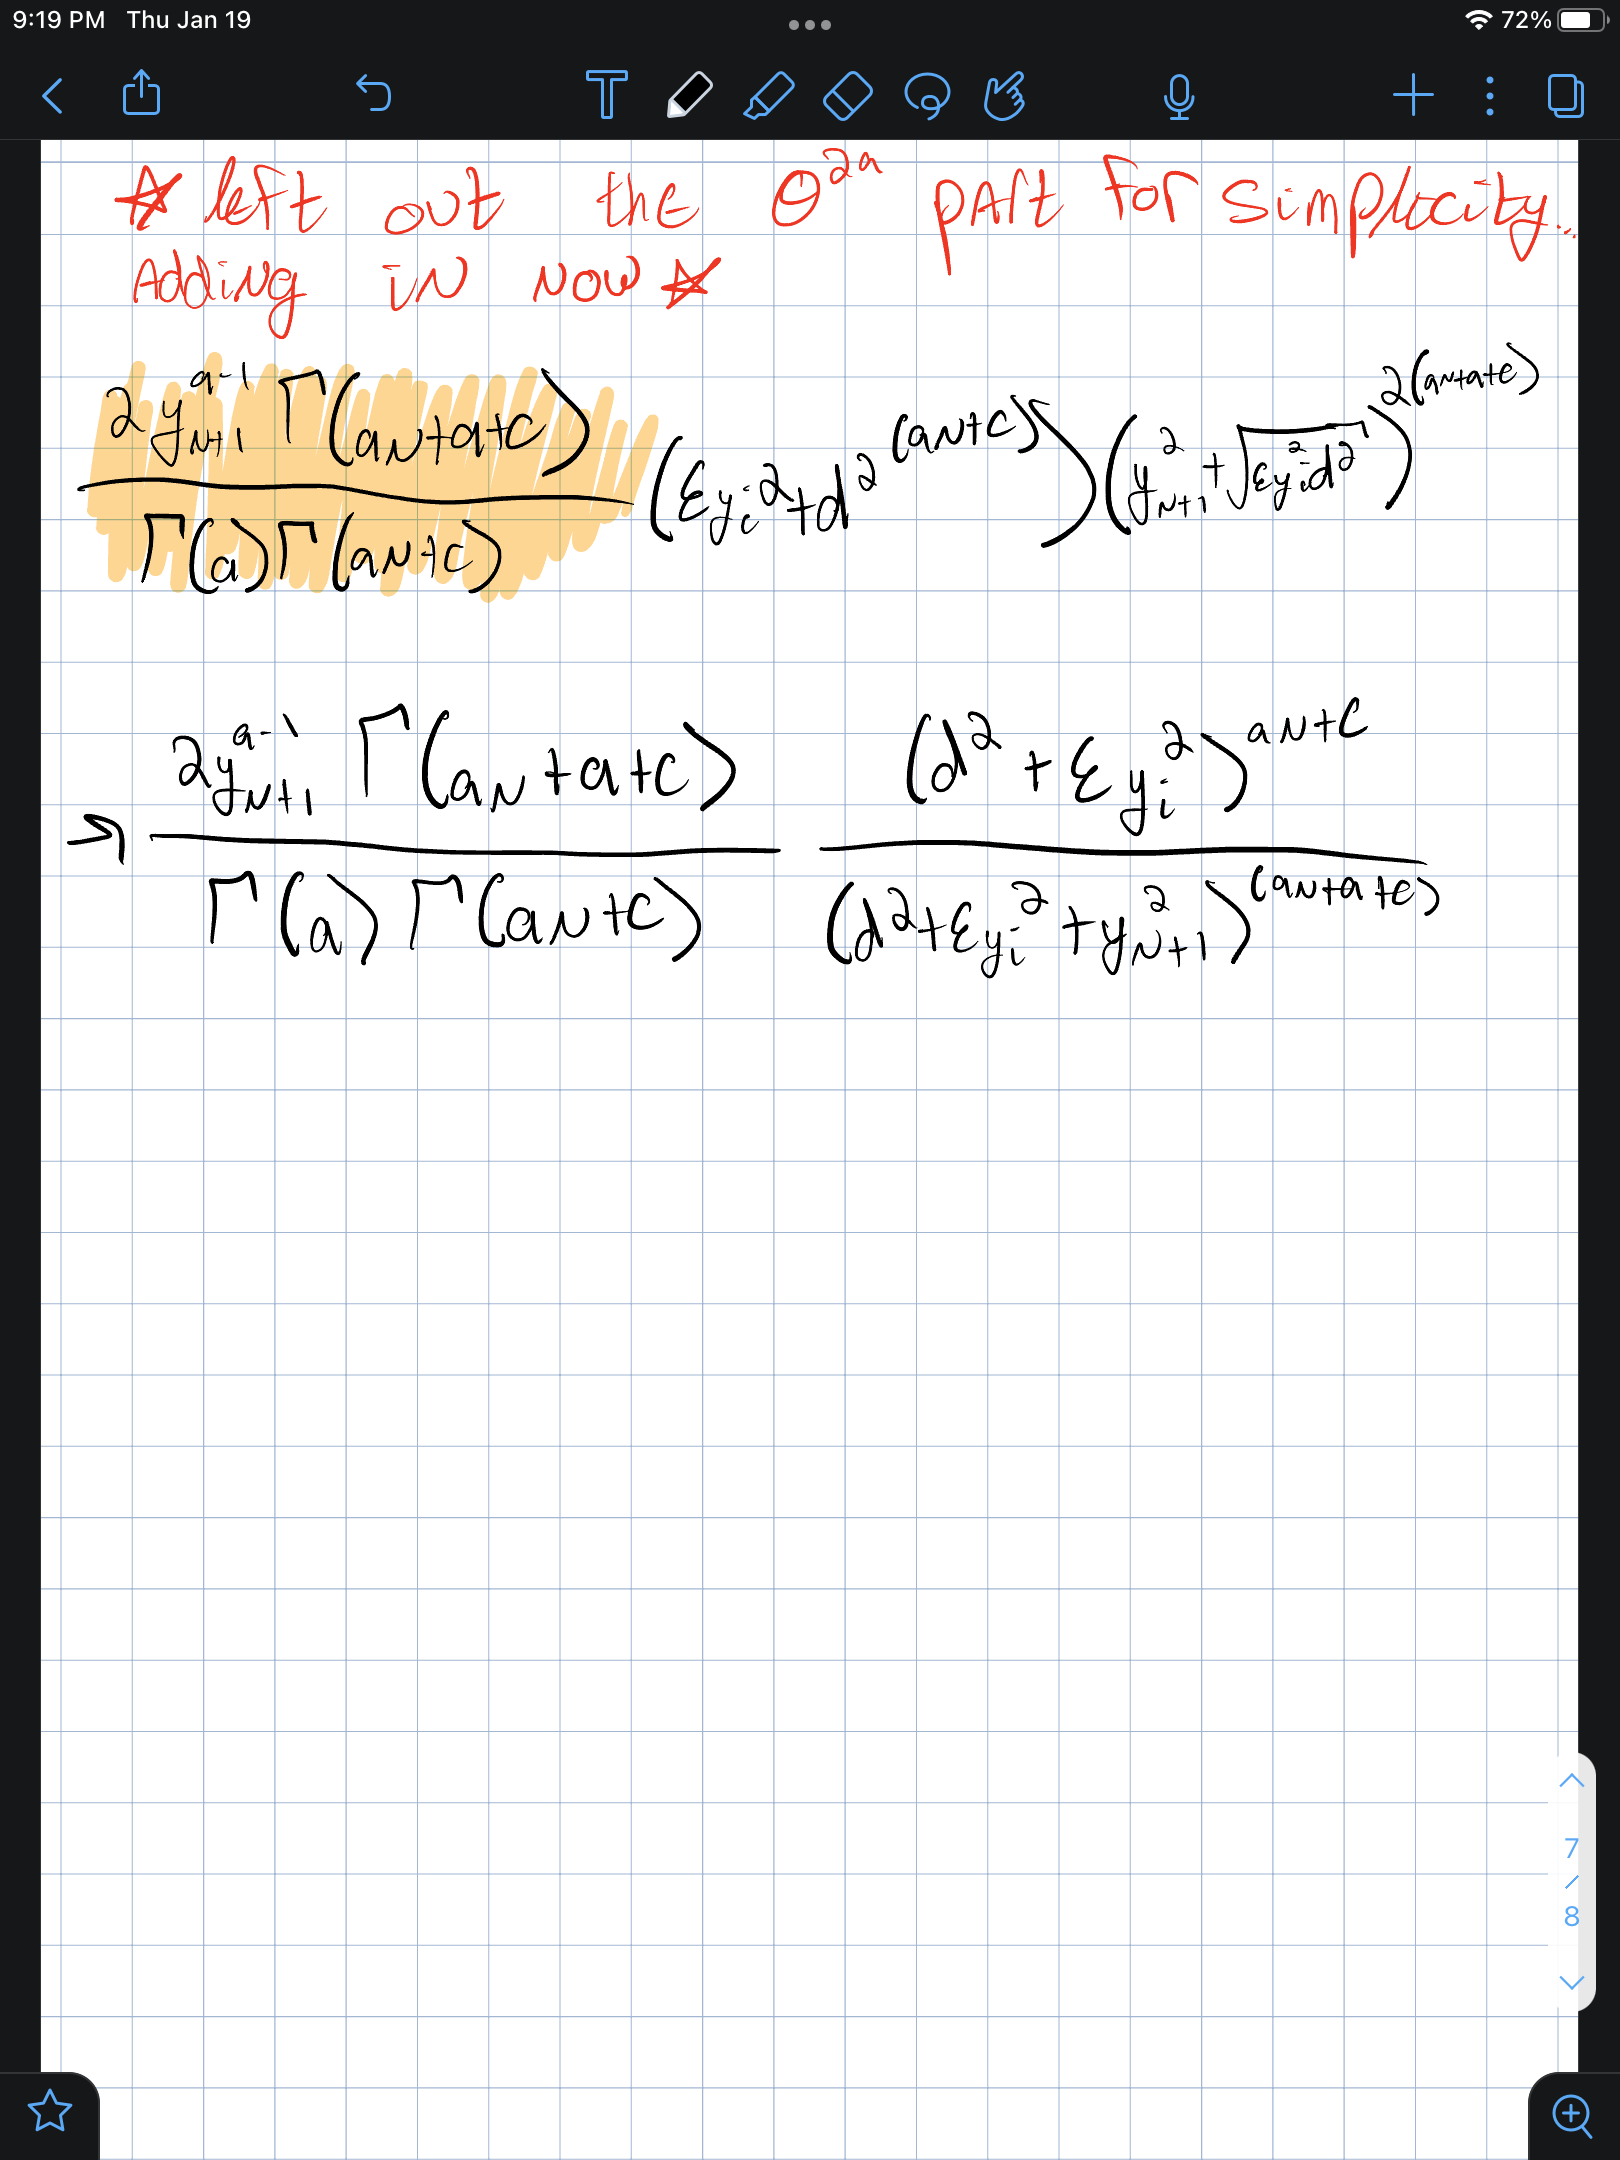 9:19 PM Thu Jan 19 72%
☆ left out the θ^2a part for simplicity...
Adding in now ☆
2y_{N+1}^{a-1} Γ(aN+a+c)
Γ(a)Γ(aN+c)
(Σy_i^2+d^2^{(aN+c)})(y_{N+1}^2+√Σy_i^2d^2)^{2(aN+a+c)}
→ 2y_{N+1}^{a-1} Γ(aN+a+c) (d^2+Σy_i^2)^{aN+c}
Γ(a)Γ(aN+c) (d^2+Σy_i^2+y_{N+1}^2)^{(aN+a+c)}
7
/
8